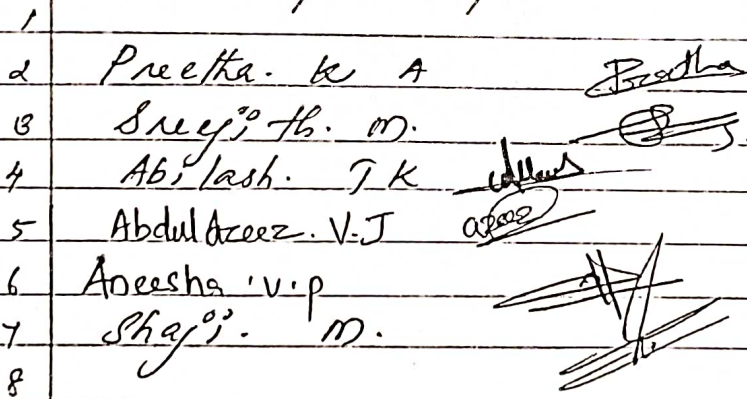 1
2 Preetha. K A Preetha
3 Sreejith. M.
4 Abilash. T K
5 Abdul Azeez. V.J azeez
6 Aneesha .V.P
7 Shaji. M.
8